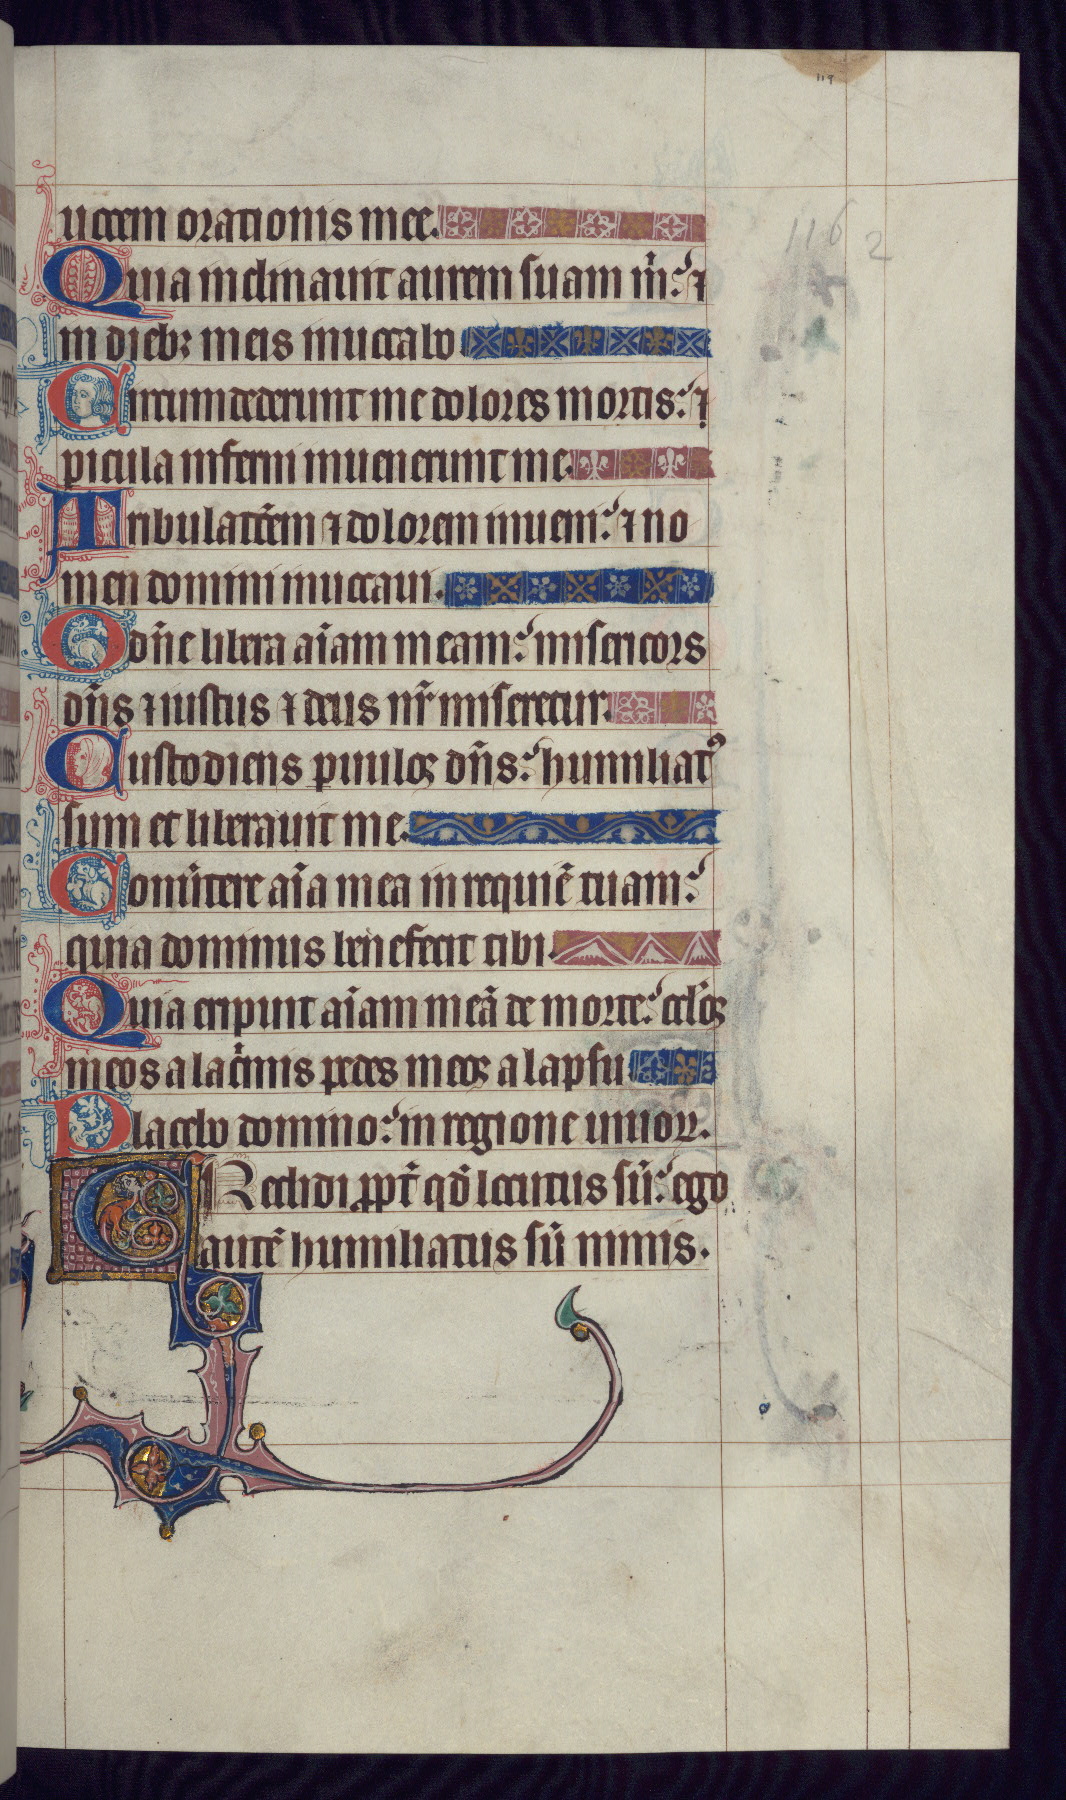 119
116
2
uocem orationis mee.
Quia inclinauit aurem suam m̄: ⁊
in dieb; meis inuocabo
Circumdederunt me dolores mortis: ⁊
picula inferni inuenerunt me.
Tribulacōem ⁊ dolorem inueni: ⁊ no
men domini inuocaui.
O dn̄e libera aīam meam: misericors
dn̄s ⁊ iustus ⁊ deus nr̄ miseretur.
Custodiens puuloꝝ dn̄s: humiliatꝰ
sum et liberauit me.
Conūtere aīa mea in requiē tuam:
quia dominus benefecit tibi.
Quia eripuit aīam meā de morte: oc̄los
meos a lac̄mis pedes meos a lapsu
Placebo domino: in regione uiuoꝝ.
Credidi ꝓpt̄ qd̄ locutus sū: ego
autē humiliatus sū nimis.